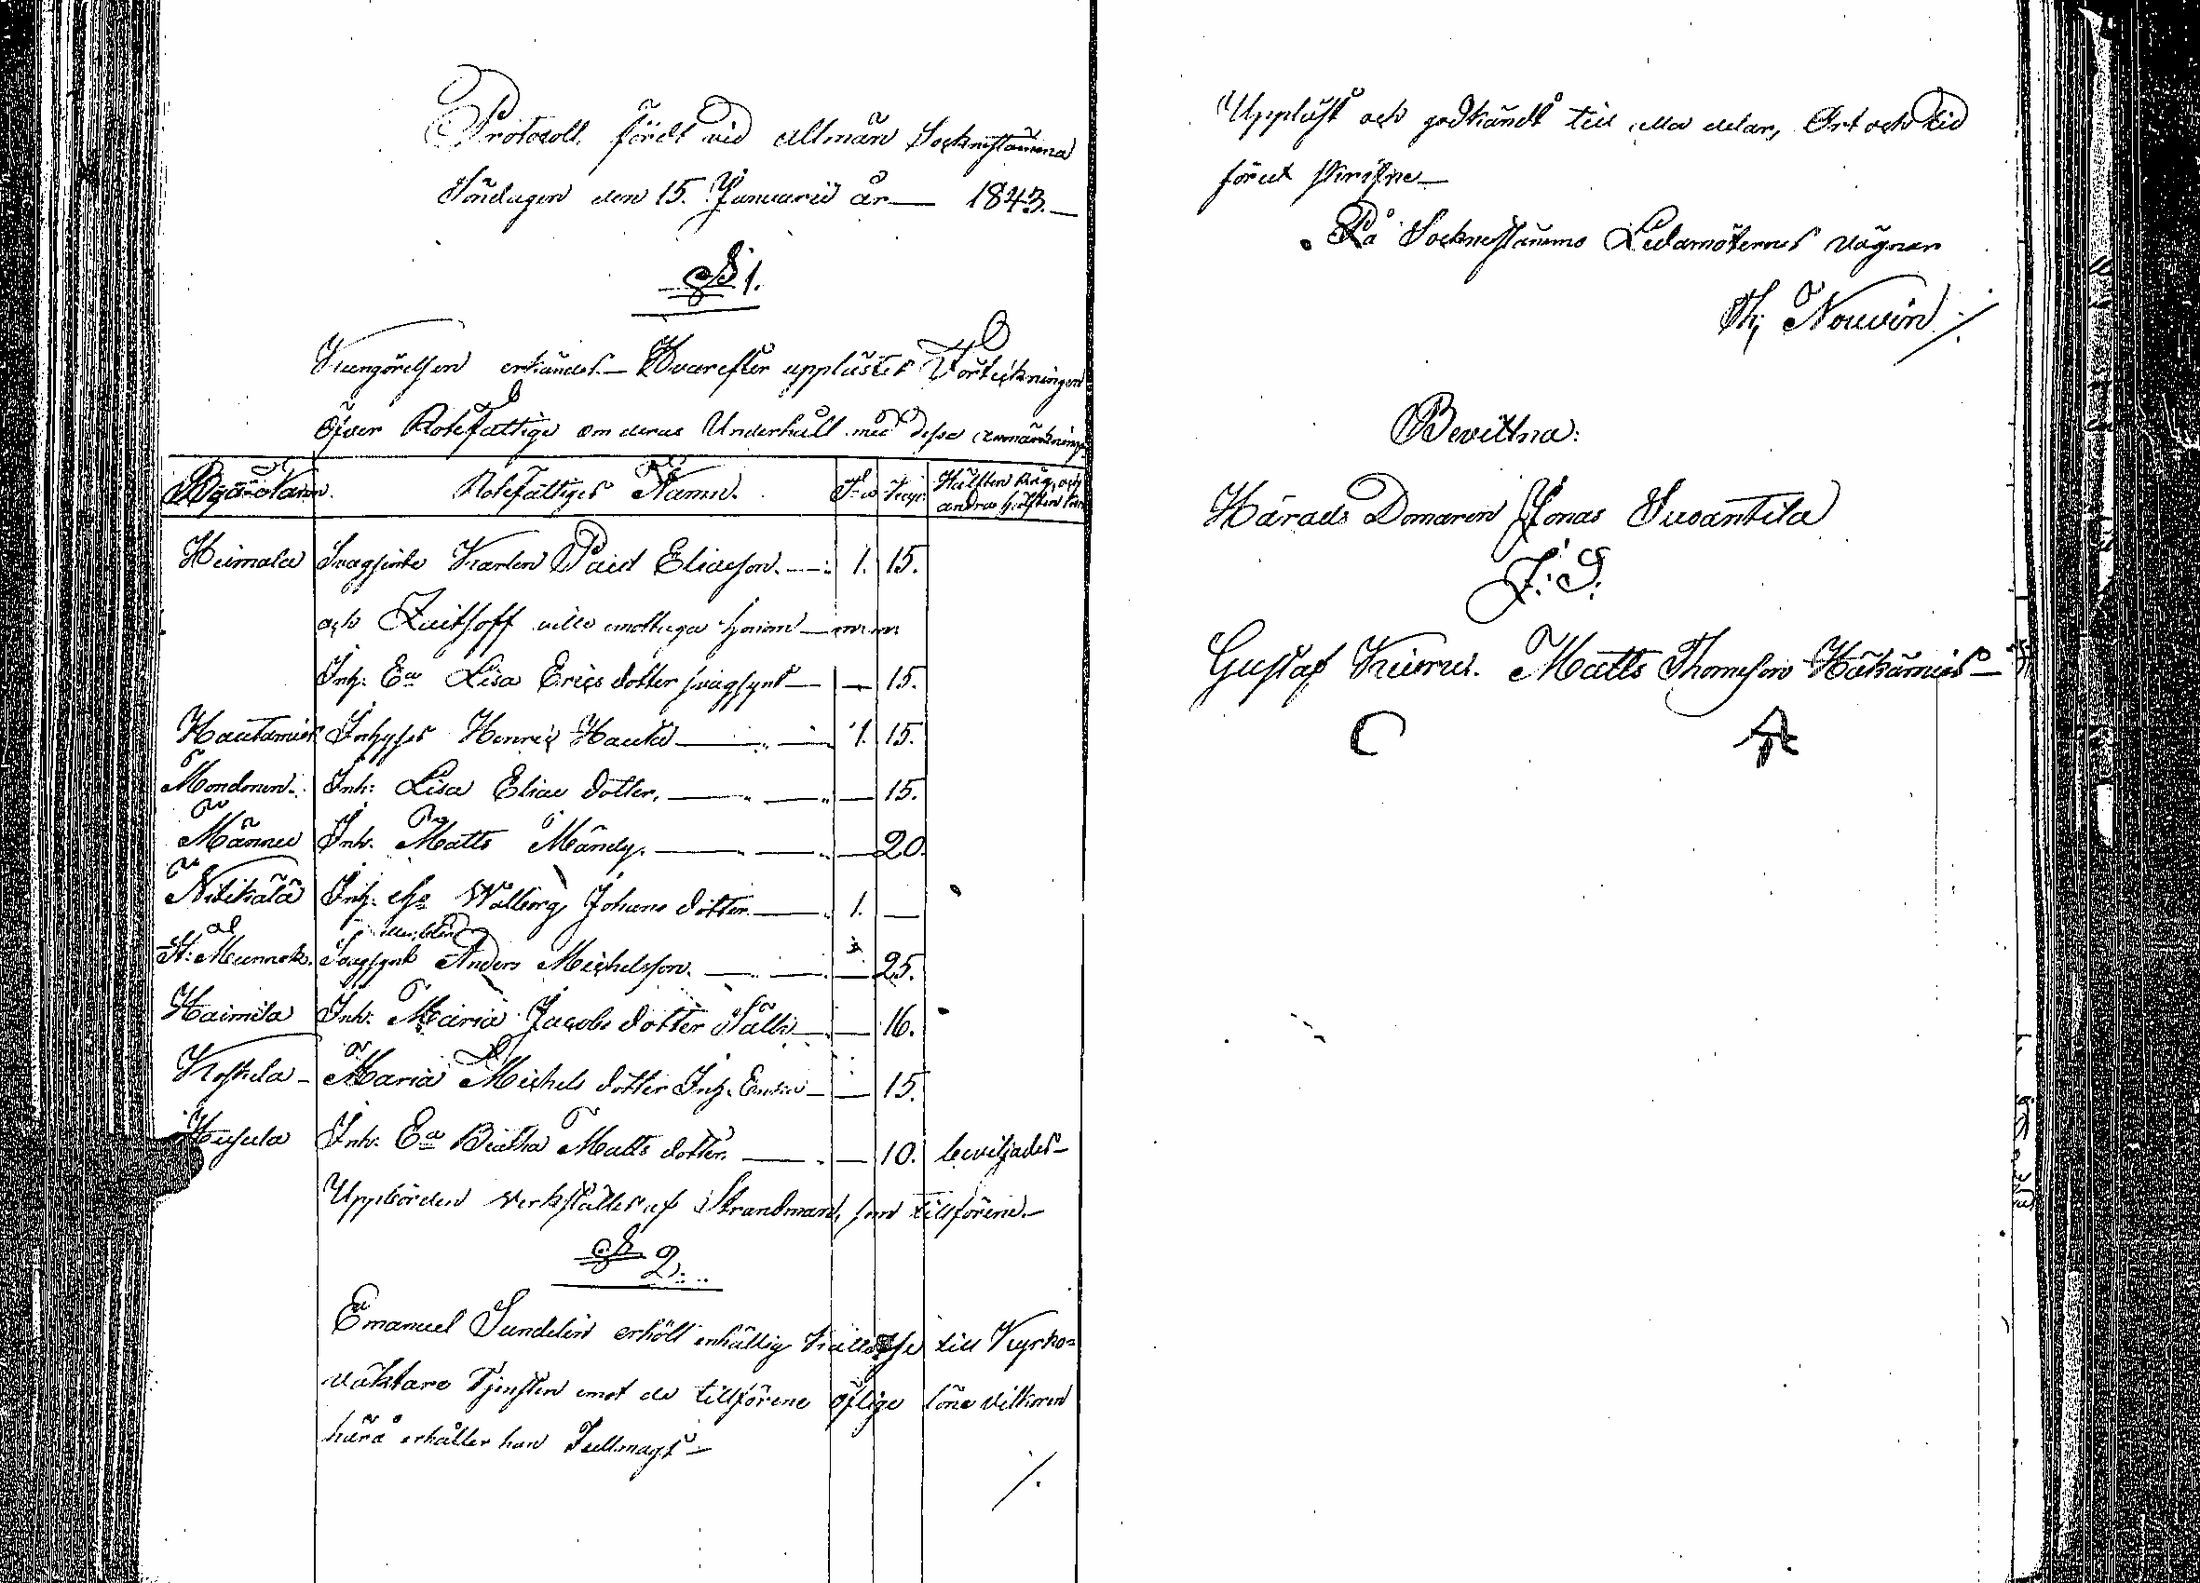 Protocoll, fördt vid allmän Socknestämma
Söndagen den 15. Januarii år — 1843.—
§ 1.
Kungörelsen erkändes.— Hvarefter upplästes Förteckningen
öfver Rotefattige om deras Underhåll med dessa anmärkningar
Byanamn. Rotefattiges Namn. Hälften Råg, och andra hälften Korn
Heimala Svagsinte Karlen Paul Eliasson. — 1. 15.
och villa emottaga honom —
Inh. Ea Lisa Erics dotter svagsynt — — 15.
Hautamies Inhyses Henric Hauta — 1. 15.
Inh: Lisa Elias dotter. — — 15.
Männu Inh. Matts Mändy. — — 20.
Inh. Walborg Johans dotter — 1. —
Svagsynt Anders Michelsson. — — 25.
Haimila Inh. Maria Jacobs dotter Sälli — — 16.
Koskela — Maria Michels dotter Inh. Enka — — 15.
Husula Inh. Ea Beatha Matts dotter. — — 10. beviljades —
Uppbörden verkställes af Strandman, som tillförene.—
§ 2.
Emanuel Sundelin erhöll enhällig kallelse till Kyrko=
väktare Tjensten emot de tillförene öflige löne vilkoren
härå erhåller han Fullmagt —
Uppläst och godkändt till alla delar, Ort och tid
förut skrifne —
På Socknestämmo Ledamöternes vägnar
Bevittna:
Härads Domaren Jonas Suvantila
J. S.
Gustaf Matts Thomsson